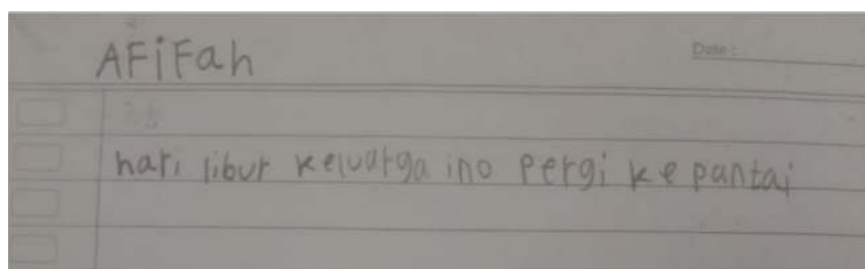 AFiFah
Date :
hari libur keluarga ino pergi ke pantai